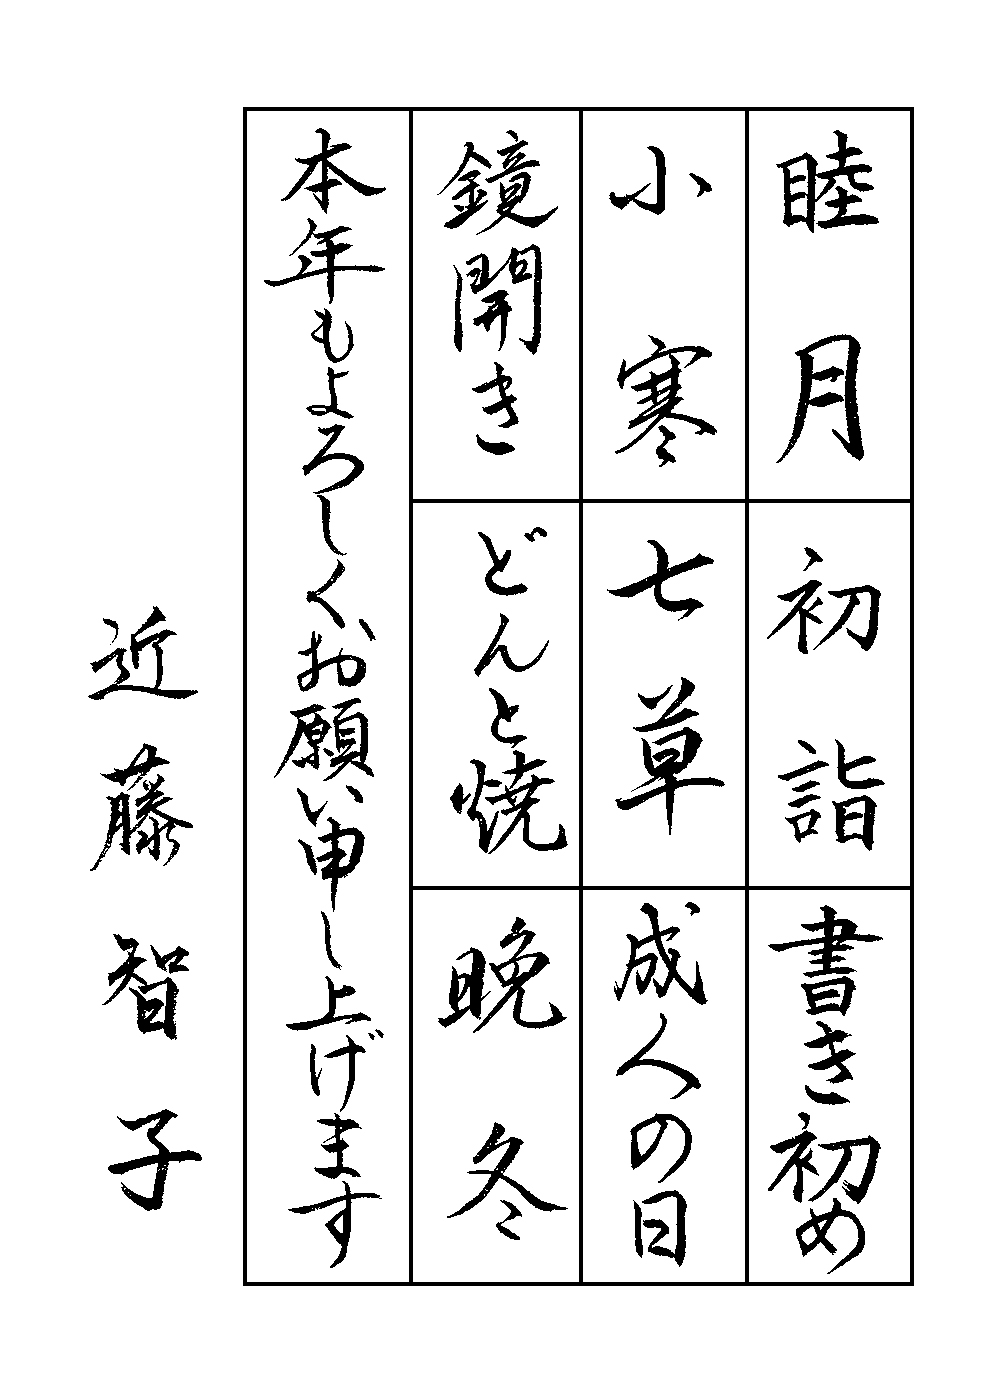 睦月
初詣
書き初め
小寒
七草
成人の日
鏡開き
どんと焼
晩冬
本年もよろしくお願い申し上げます
近藤智子